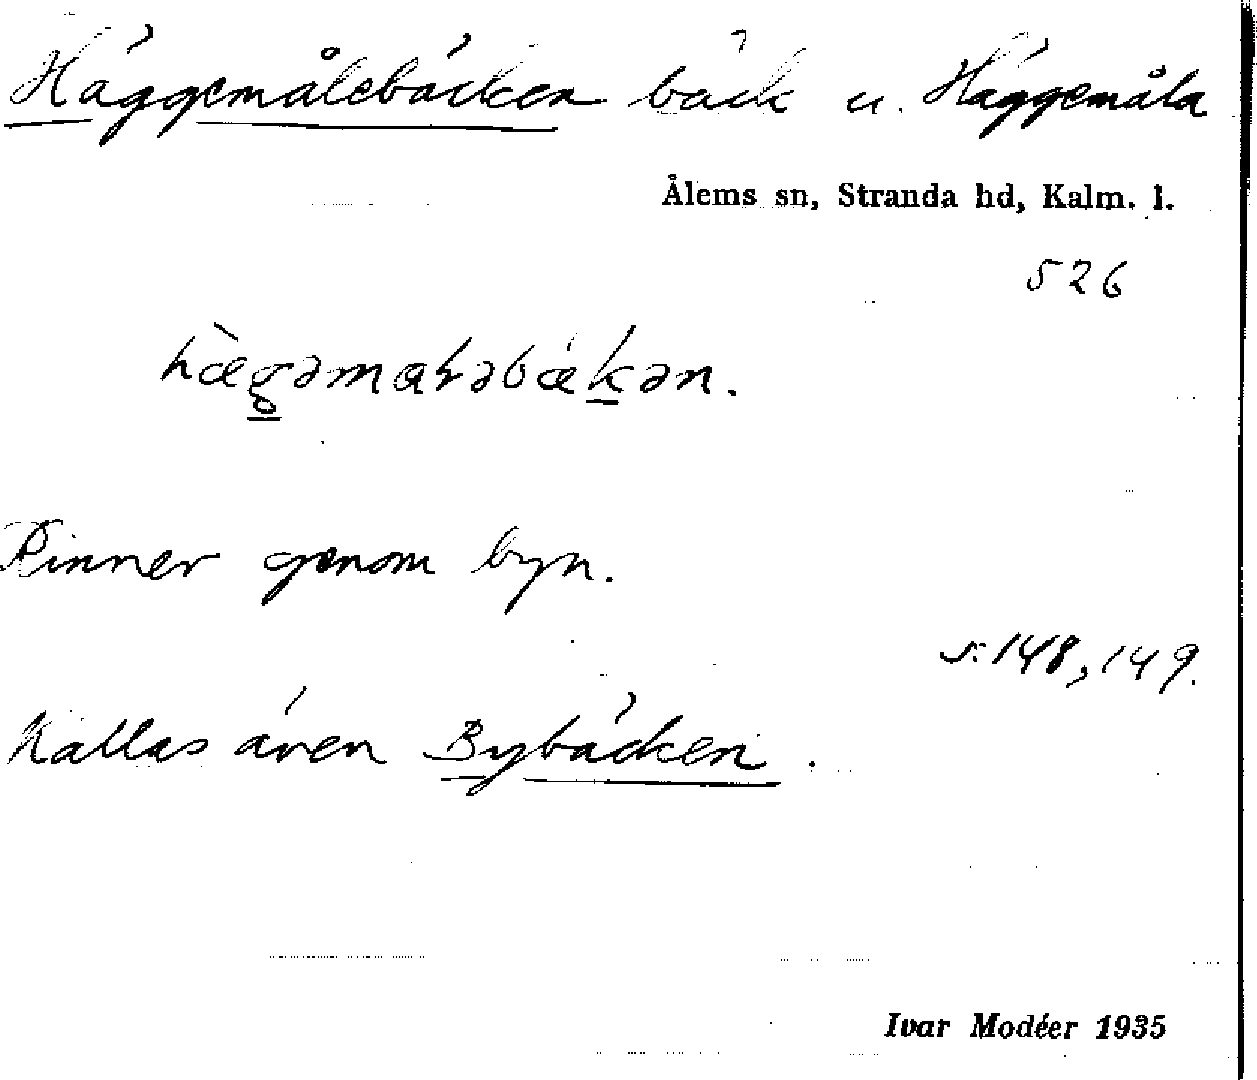 Häggemålebäcken bäck u. Häggemåla
Ålems sn, Stranda hd, Kalm. l.
526
hæ̀g̲əmaɬəbækən.
Rinner genom byn.
s. 148, 149.
Kallas även Bybäcken.
Ivar Modéer 1935